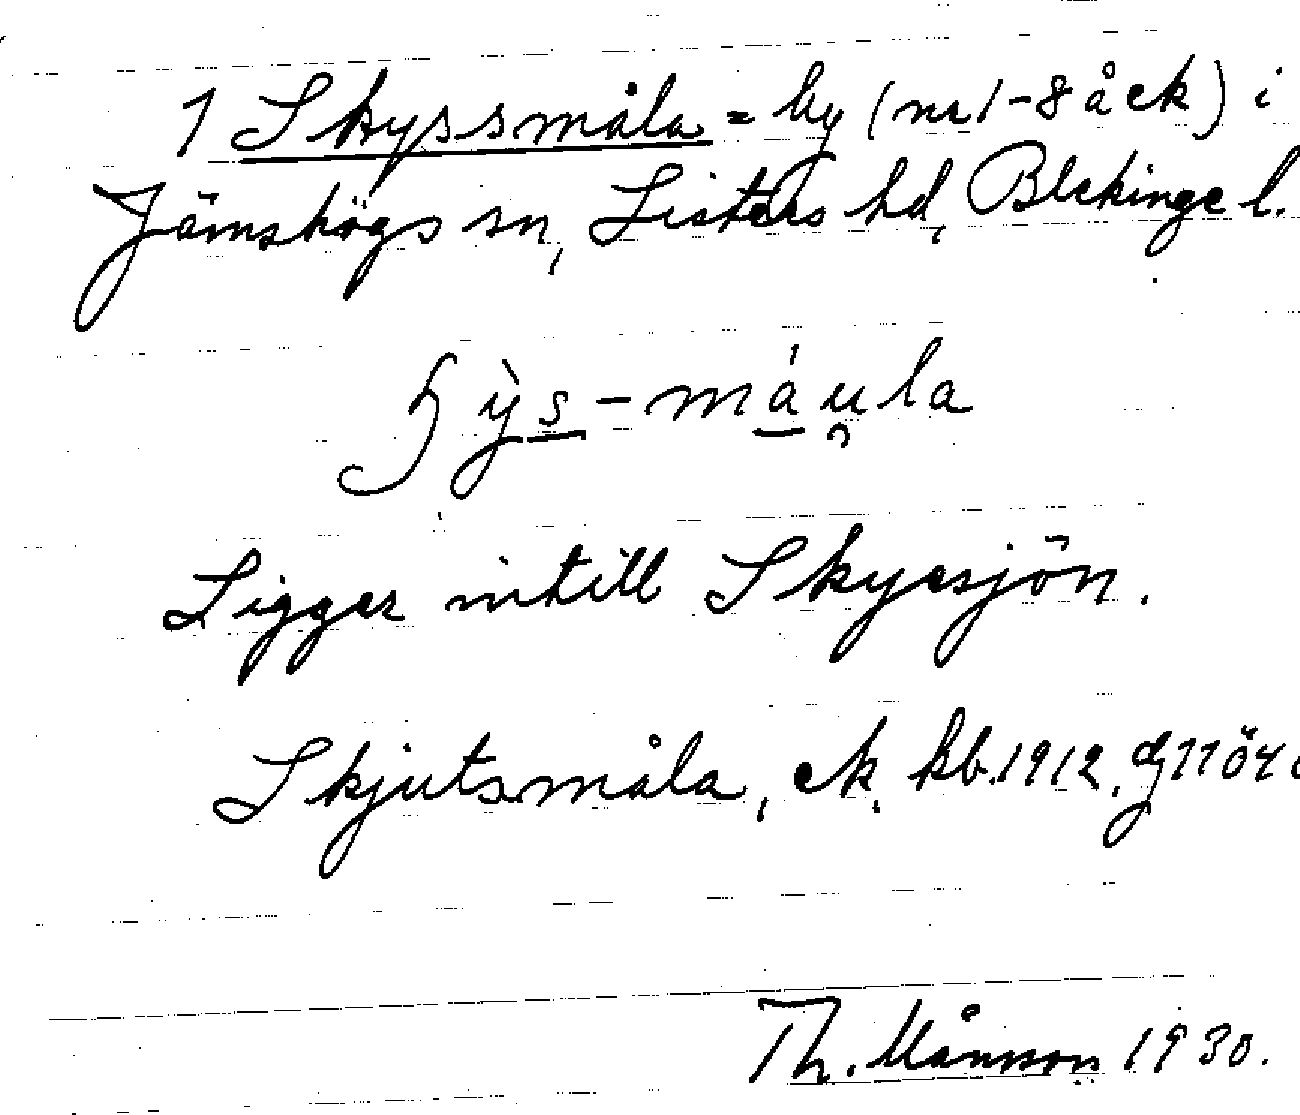 1 Skyssmåla = by (nr 1-8 å ek) i
Jämshögs sn, Listers hd, Blekinge l.
ɧỳs-máu̯la
Ligger intill Skyesjön.
Skjutsmåla, ek. kb. 1912.
Th. Månsson 1930.